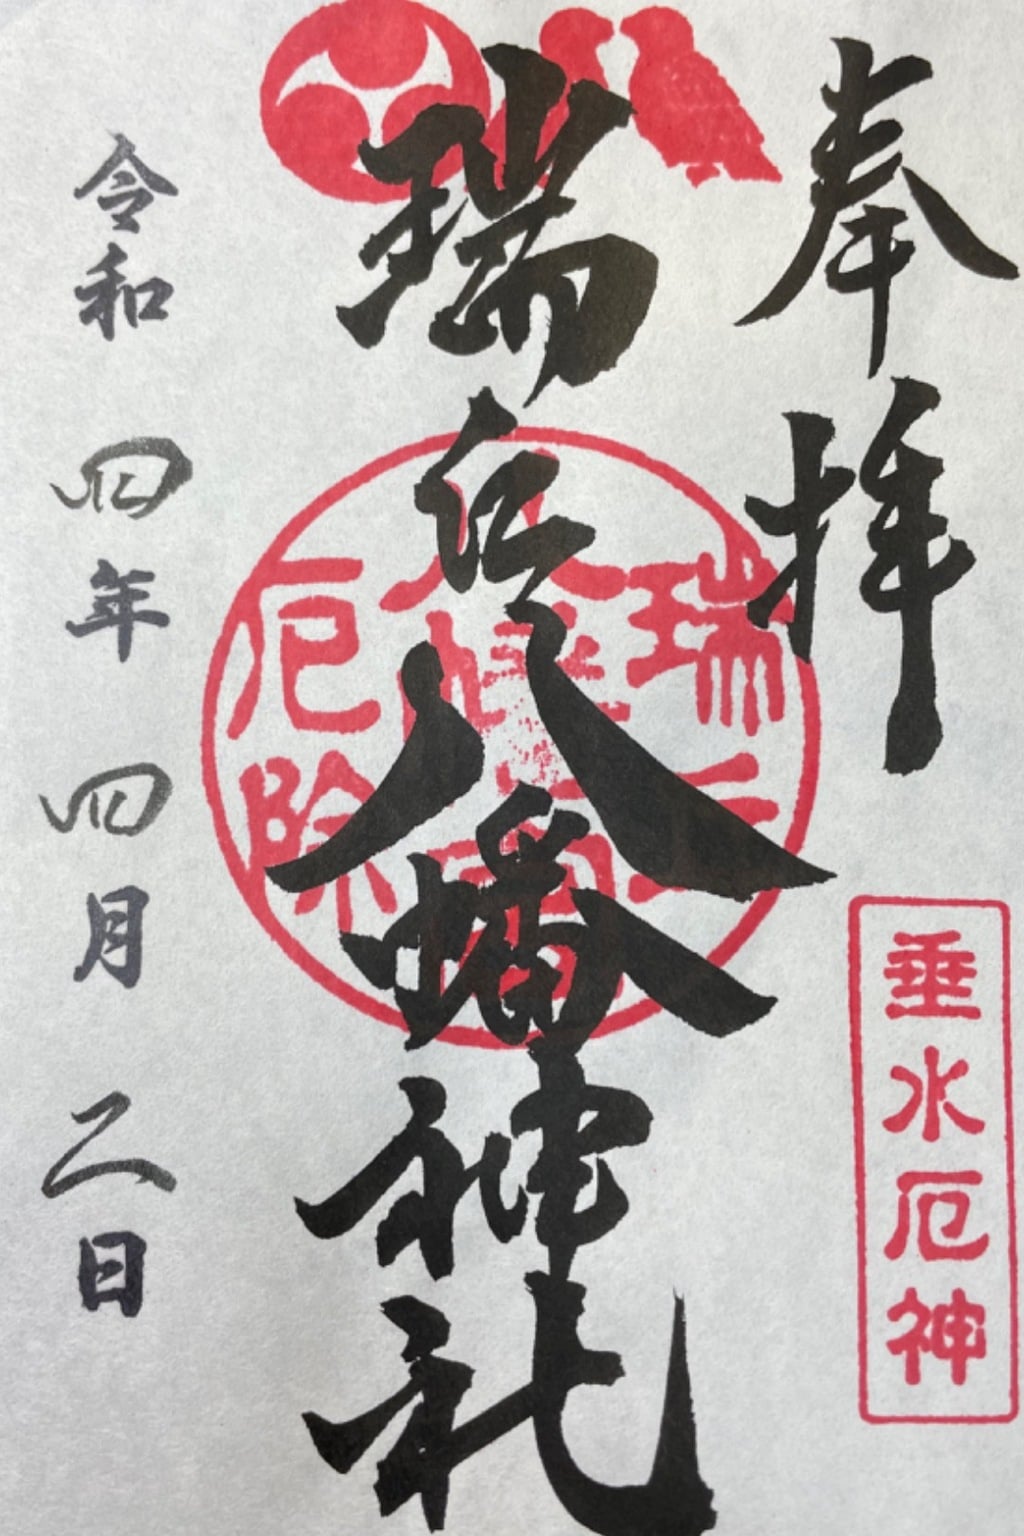 奉拝
垂水厄神
瑞丘八幡神社
瑞丘
八幡宮
厄除
令和 四年 四月 二日